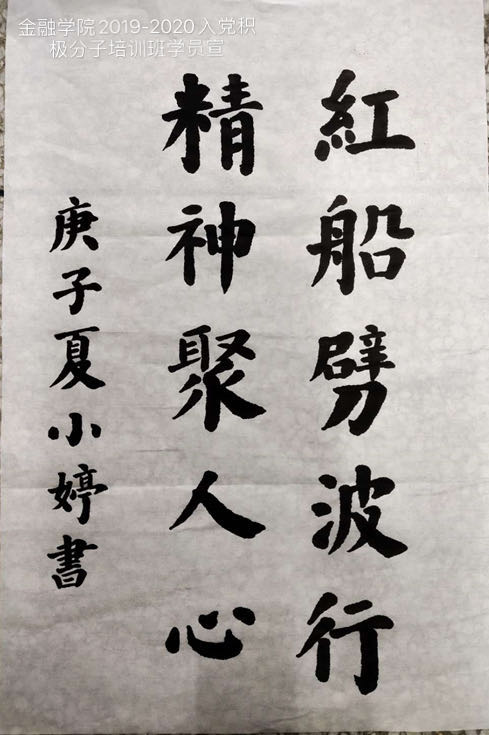 金融学院2019-2020入党积
极分子培训班学员宣
紅船劈波行
精神聚人心
庚子夏小婷書